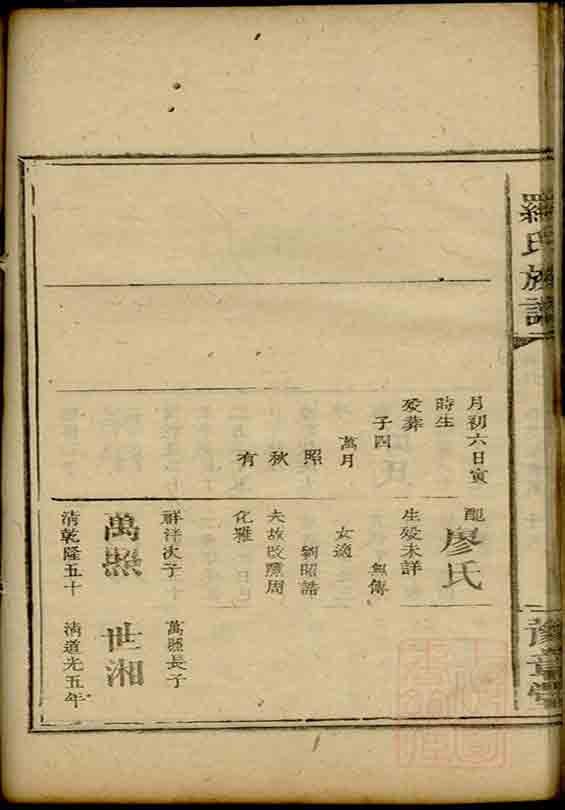 羅氏族譜
豫章堂
月初六日寅
時生
歿葬
子四
萬月
照
秋
有
配
廖氏
生歿未詳
無傳
女適
劉昭誥
夫故改醮周
化雅
祥洋次子
萬照
清乾隆五十
萬照長子
世湘
清道光五年